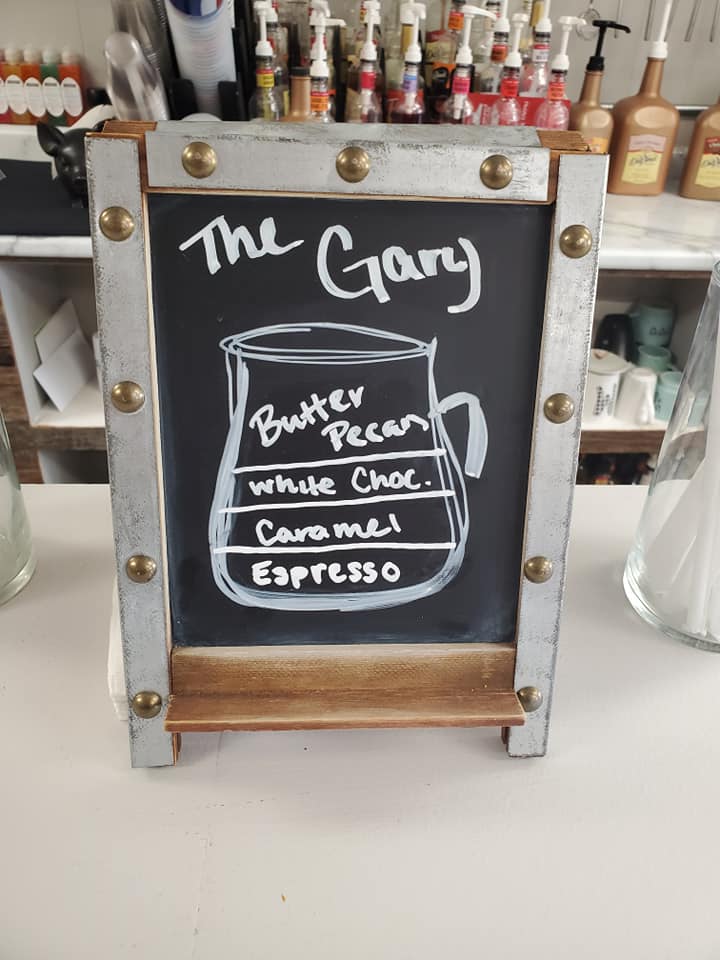 The Gary
Butter
Pecan
white Choc.
Caramel
Espresso